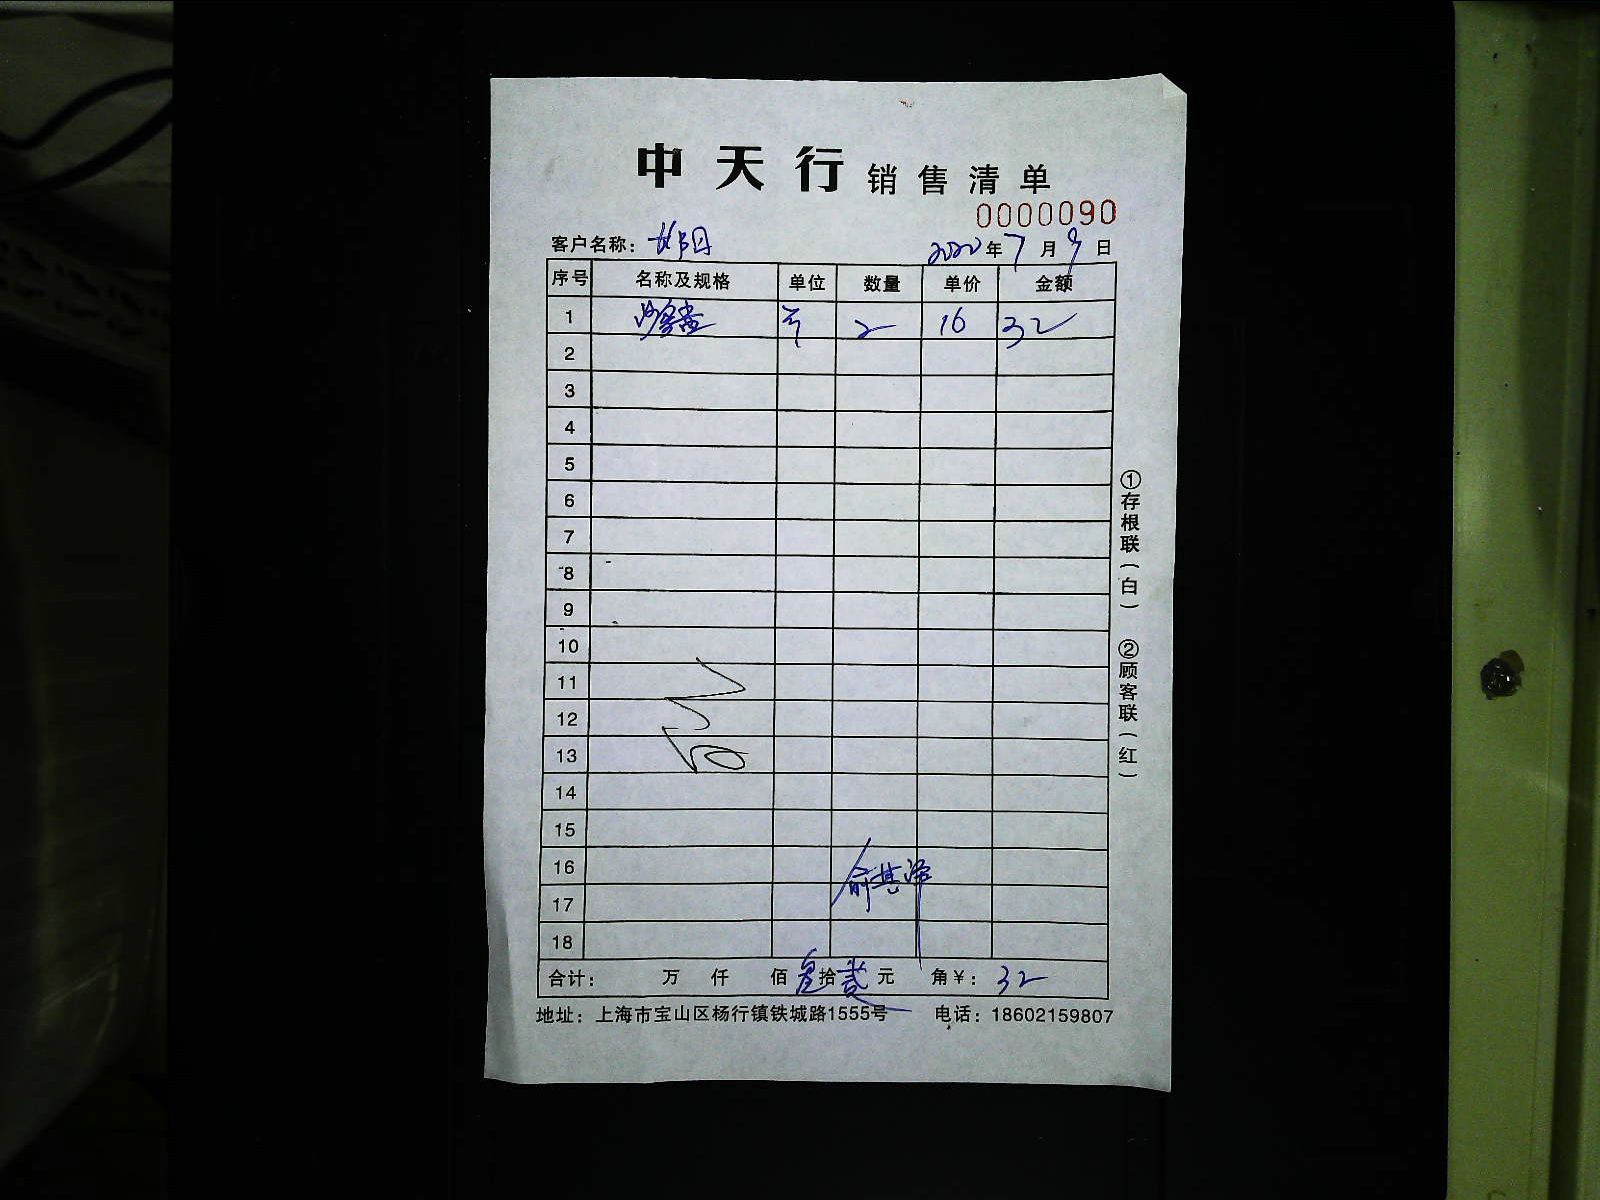 中天行 销售清单
0000090
客户名称： 2020年7月9日
序号 名称及规格 单位 数量 单价 金额
1 2 16 32
2
3
4
5
6
7
8
9
10
11
12
13
14
15
16
17
18
俞其泽
合计： 万 仟 佰叁拾贰元 角¥：32
地址：上海市宝山区杨行镇铁城路1555号 电话：18602159807
①存根联（白） ②顾客联（红）